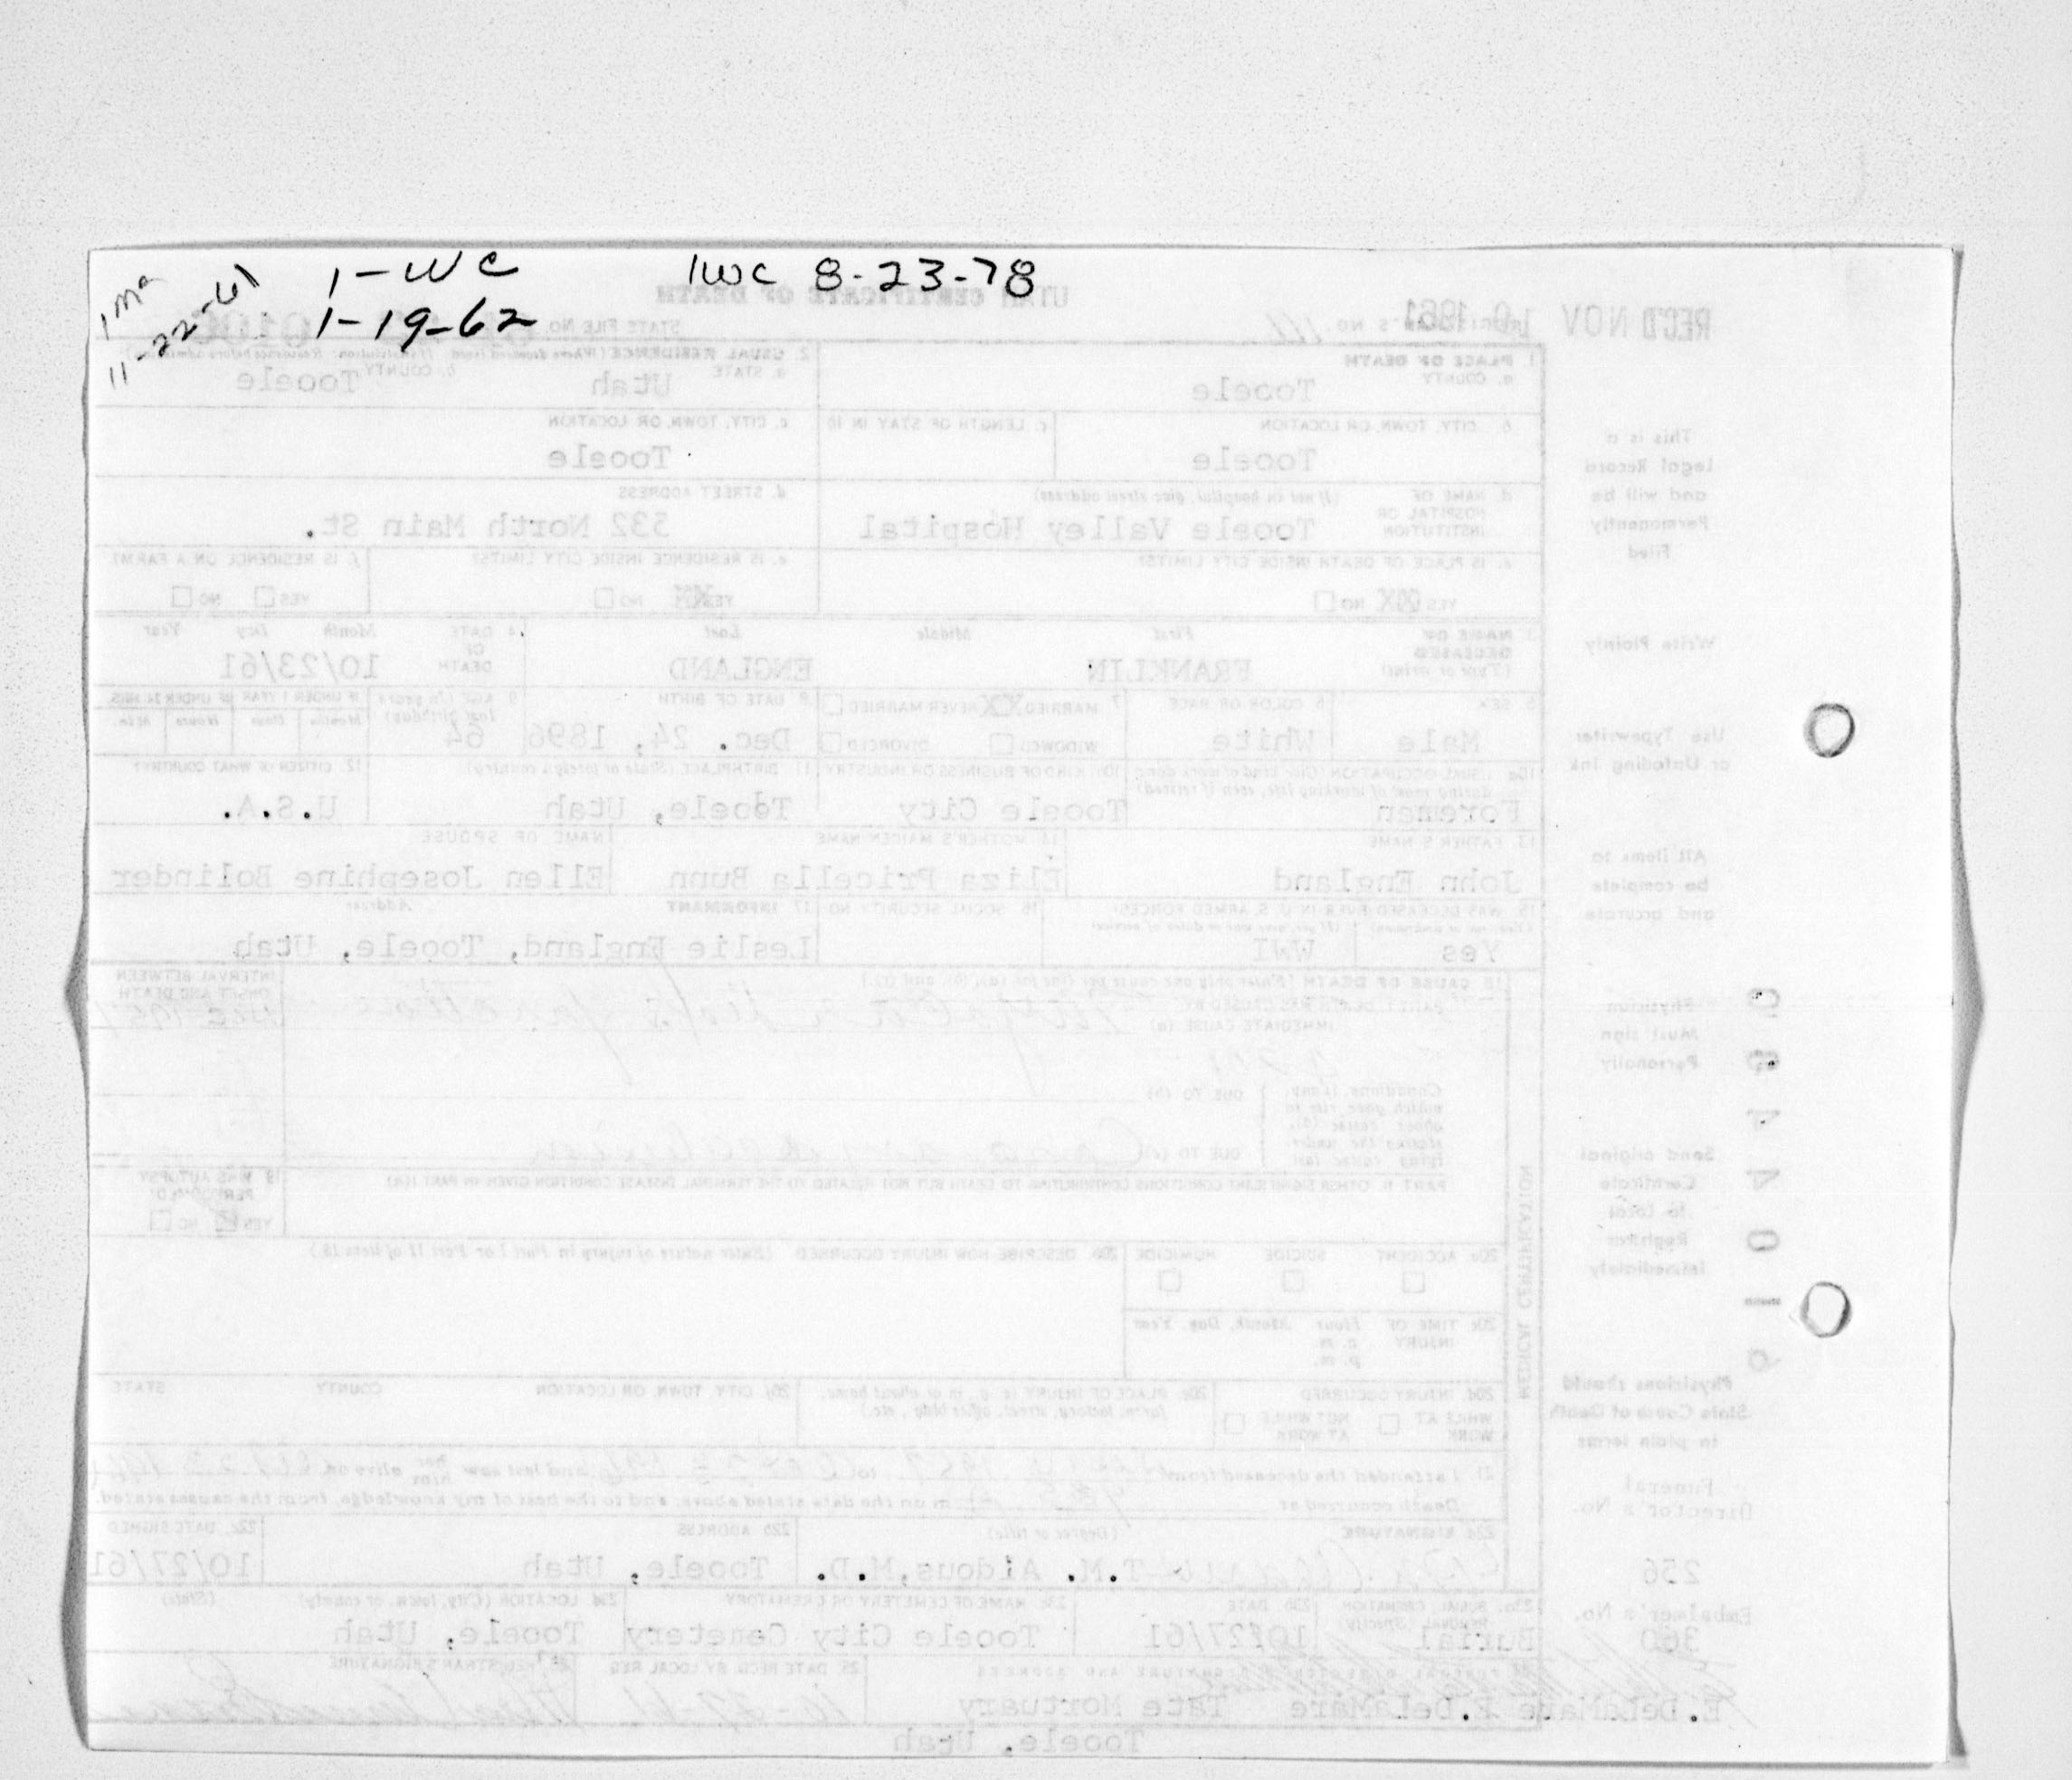 1 mc
11-22-61
1-WC
1-19-62
1WC 8-23-78
UTAH CERTIFICATE OF DEATH
REC'D NOV 10 1961
REGISTRAR'S NO.
STATE FILE NO.
1. PLACE OF DEATH
a. COUNTY
Tooele
2. USUAL RESIDENCE (Where deceased lived. If institution: Residence before admission)
a. STATE
Utah
b. COUNTY
Tooele
b. CITY, TOWN, OR LOCATION
Tooele
c. LENGTH OF STAY IN 1b
c. CITY, TOWN, OR LOCATION
Tooele
d. NAME OF HOSPITAL OR INSTITUTION
(If not in hospital, give street address)
Tooele Valley Hospital
d. STREET ADDRESS
532 North Main St.
e. IS PLACE OF DEATH INSIDE CITY LIMITS?
YES NO
e. IS RESIDENCE INSIDE CITY LIMITS?
YES NO
f. IS RESIDENCE ON A FARM?
YES NO
3. NAME OF DECEASED
(Type or print)
First Middle Last
FRANKLIN ENGLAND
4. DATE OF DEATH
Month Day Year
10/23/61
5. SEX
Male
6. COLOR OR RACE
White
7. MARRIED XX NEVER MARRIED
WIDOWED DIVORCED
8. DATE OF BIRTH
Dec. 24, 1896
9. AGE (In years last birthday)
64
IF UNDER 1 YEAR
Months Days
IF UNDER 24 HRS.
Hours Min.
10a. USUAL OCCUPATION (Give kind of work done during most of working life, even if retired)
Foreman
10b. KIND OF BUSINESS OR INDUSTRY
Tooele City
11. BIRTHPLACE (State or foreign country)
Tooele, Utah
12. CITIZEN OF WHAT COUNTRY?
U.S.A.
13. FATHER'S NAME
John England
14. MOTHER'S MAIDEN NAME
Eliza Pricella Bunn
NAME OF SPOUSE
Ellen Josephine Bolinder
15. WAS DECEASED EVER IN U. S. ARMED FORCES?
(Yes, no, or unknown) (If yes, give war or dates of service)
Yes WWI
16. SOCIAL SECURITY NO.
17. INFORMANT Address
Leslie England, Tooele, Utah
18. CAUSE OF DEATH (Enter only one cause per line for (a), (b), and (c).)
PART I. DEATH WAS CAUSED BY:
IMMEDIATE CAUSE (a)
INTERVAL BETWEEN ONSET AND DEATH
Conditions, if any, which gave rise to above cause (a), stating the underlying cause last
DUE TO (b)
DUE TO (c)
PART II. OTHER SIGNIFICANT CONDITIONS CONTRIBUTING TO DEATH BUT NOT RELATED TO THE TERMINAL DISEASE CONDITION GIVEN IN PART I(a)
19. WAS AUTOPSY PERFORMED?
YES NO
MEDICAL CERTIFICATION
20a. ACCIDENT SUICIDE HOMICIDE
20b. DESCRIBE HOW INJURY OCCURRED. (Enter nature of injury in Part I or Part II of item 18.)
20c. TIME OF INJURY
Hour Month, Day, Year
a. m.
p. m.
20d. INJURY OCCURRED
WHILE AT WORK NOT WHILE AT WORK
20e. PLACE OF INJURY (e.g., in or about home, farm, factory, street, office bldg., etc.)
20f. CITY, TOWN, OR LOCATION COUNTY STATE
21. I attended the deceased from to and last saw her him alive on
Death occurred at m on the date stated above; and to the best of my knowledge, from the causes stated.
22a. SIGNATURE (Degree or title)
T.M. Aldous,M.D.
22b. ADDRESS
Tooele, Utah
22c. DATE SIGNED
10/27/61
23a. BURIAL, CREMATION REMOVAL (Specify)
Burial
23b. DATE
10/27/61
23c. NAME OF CEMETERY OR CREMATORY
Tooele City Cemetery
23d. LOCATION (City, town, or county) (State)
Tooele, Utah
24. FUNERAL DIRECTOR'S SIGNATURE AND ADDRESS
E. DeLaMare E.DeLaMare Tate Mortuary
Tooele, Utah
25. DATE RECD BY LOCAL REG
26. REGISTRAR'S SIGNATURE
This is a Legal Record and will be Permanently Filed
Write Plainly
Use Typewriter or Unfading Ink
All items to be complete and accurate
Physician Must sign Personally
Send original Certificate to Local Registrar Immediately
Physicians should State Cause of Death in plain terms
Funeral Director's No.
256
Embalmer's No.
360